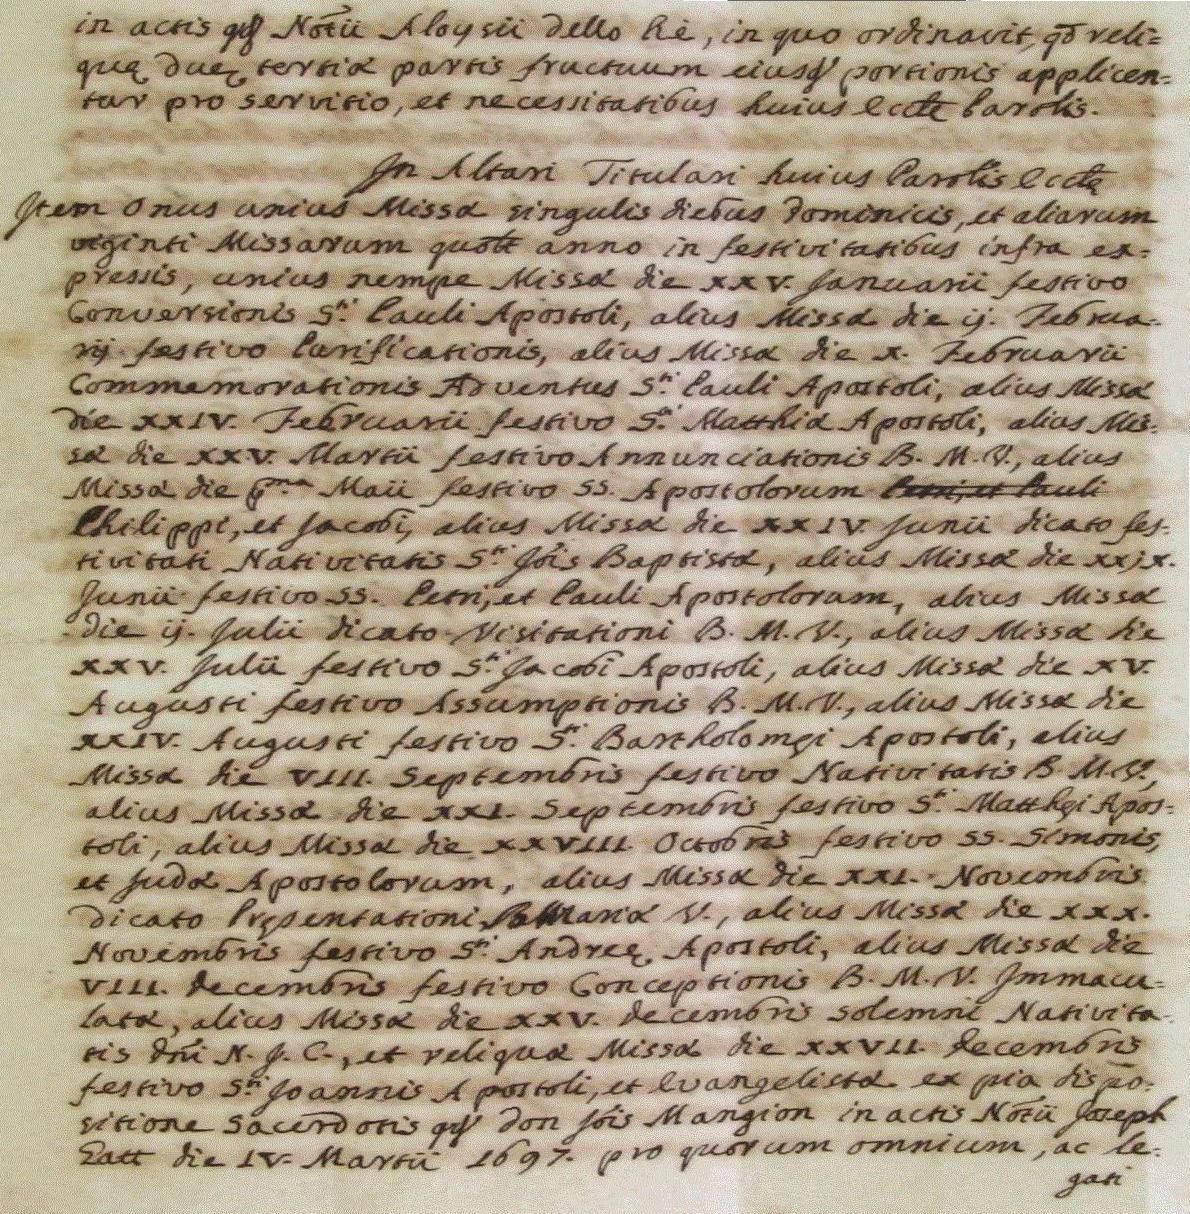 in actis qᵐ Notii Aloysii Dello Rè, in quo ordinavit, qd reli=
quę duę tertiæ partis fructuum eiusd portionis applicen=
tur pro servitio, et necessitatibus huius Eccłæ Parolis.
In Altari Titulari huius Parolis Eccłę
Item Onus unius Missæ singulis diebus Dominicis, et aliarum
viginti Missarum quolt anno in festivitatibus infra ex=
pressis, unius nempe Missæ die XXV. Januarii festivo
Conversionis Sti Pauli Apostoli, alius Missæ die ij. Februa=
rij festivo Purificationis, alius Missæ die X. Februarii
Commemorationis Adventus Sti Pauli Apostoli, alius Missæ
die XXIV. Februarii festivo Sti Matthiæ Apostoli, alius Mis=
sæ die XXV. Martii festivo Annunciationis B. M. V., alius
Missæ die pma Maii festivo SS. Apostolorum Petri, et Pauli
Philippi, et Jacobi, alius Missæ die XXIV. Junii dicato fes=
tivitati Nativitatis Sti Jois Baptistæ, alius Missæ die XXIX.
Junii festivo SS. Petri, et Pauli Apostolorum, alius Missæ
die ij. Julii dicato Visitationi B. M. V., alius Missæ die
XXV. Julii festivo Sti Jacobi Apostoli, alius Missæ die XV.
Augusti festivo Assumptionis B. M. V., alius Missæ die
XXIV. Augusti festivo Sti Bartholomęi Apostoli, alius
Missæ die VIII. Septembris festivo Nativitatis B. M. V.,
alius Missæ die XXI. Septembris festivo Sti Matthęi Apos=
toli, alius Missæ die XXVIII. Octobris festivo SS. Simonis,
et Judæ Apostolorum, alius Missæ die XXI. Novembris
dicato Pręsentationi Mariæ V., alius Missæ die XXX.
Novembris festivo Sti Andreę Apostoli, alius Missæ die
VIII. Decembris festivo Conceptionis B. M. V. Immacu=
latæ, alius Missæ die XXV. Decembris solemni Nativita=
tis Dni N. J. C., et reliquæ Missæ die XXVII. Decembris
festivo Sti Joannis Apostoli, et Evangelistæ ex pia dispo=
sitione Sacerdotis qᵐ Don Jois Mangion in actis Notii Joseph
Zatt die IV. Martii 1697. pro quorum omnium, ac le=
gati